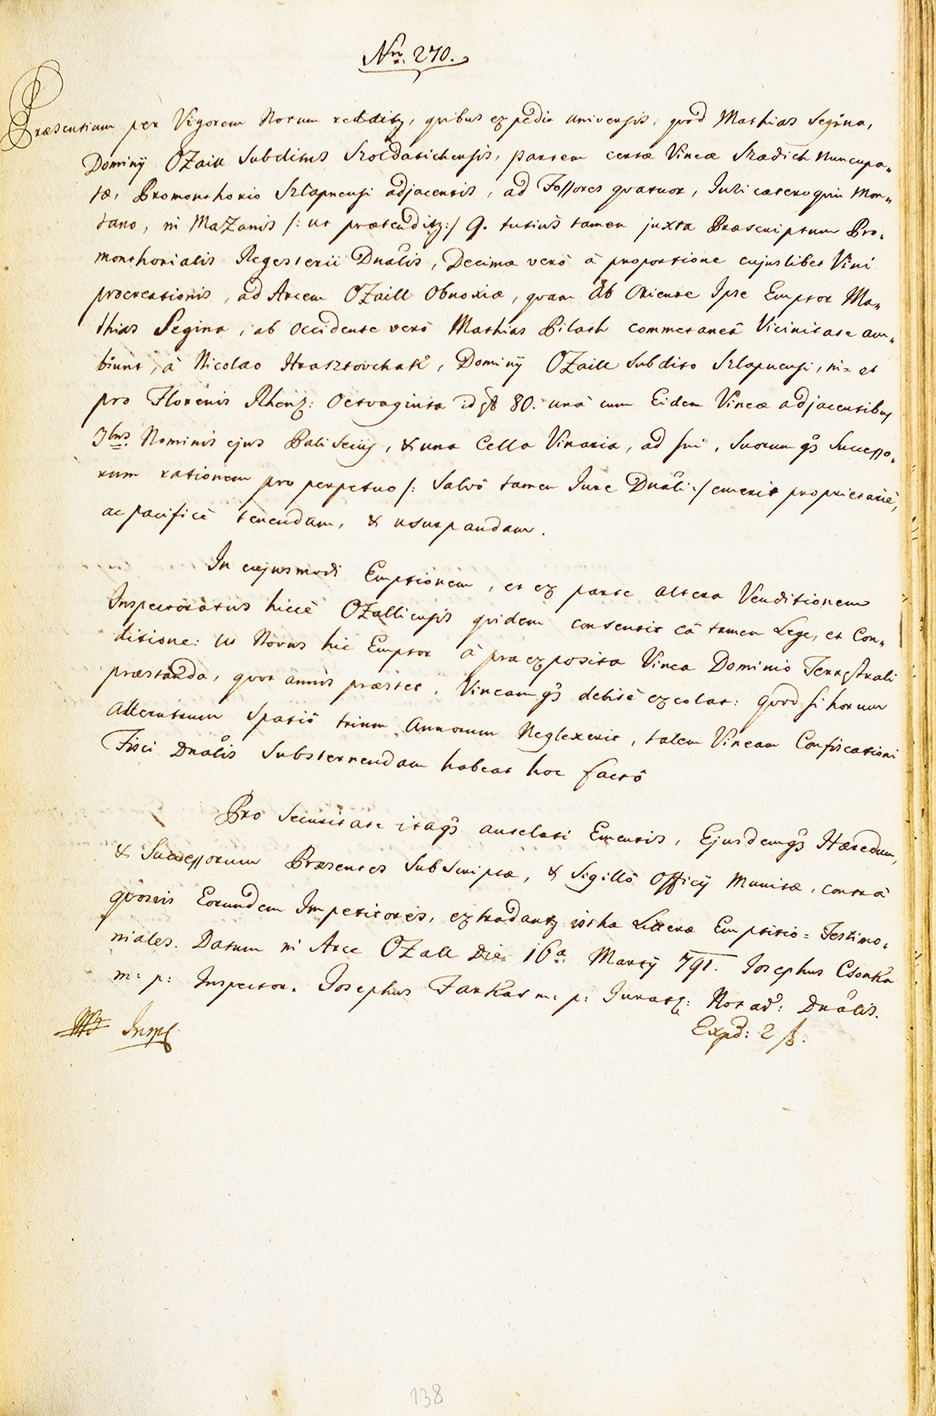 Nr. 270.
Præsentium per Vigorem Notum redditz, quibus expedit universis, quod Mathias Segina,
Dominÿ OZaill Subditus Szoldatichensis, partem certæ Vineæ Szadich Nuncupa=
tæ, Promonthorio Szlapnensi adjacentis, ad Fossores quatuor, Juri cæteroquin Mon=
tano, in MaZanis /: ut prætenditz :/ 9. tutius tamen juxta Præscriptum Pro=
monthorialis Regesterii Dnalis, Decimæ verò à proportione cujuslibet Vini
procreationis, ad Arcem OZaill Obnoxiæ, quam ab Oriente Ipse Emptor Ma=
thias Segina, ab Occidente verò Mathias Pilash commetaneâ Vicinitate am=
biunt, à Nicolao Hrasztovchak, Dominÿ OZaill Subdito Szlapnensi, in= et
pro Florenis Rhenz: Octvaginta id est 80. unà cum Eidem Vineæ adjacentibus
3bus Nominis ejus, & una Cella Vinaria, ad sui, Suorumqs Successo=
rum rationem pro perpetuo /: Salvô tamen Jure Dnali :/ emerit proprietariè,
ac pacificè tenendam, & usurpandam.
In cujusmodi Emptionem, et ex parte altera Venditionem
Inspectoratus hicce OZalliensis quidem consentit eâ tamen Lege, et Con=
ditione: ut Novus hic Emptor à præexposita Vinea Dominio Terrestrali
præstanda, quot annis præstet, Vineamqs debitè excolat: quod si horum
Alterutrum Spatiô trium Annorum Neglexerit, talem Vineam Confiscationi
Fisci Dnalis Substernendam habeat hoc factô
Pro Securitate itaqs antelati Ementis, Ejusdemqs Hæredum,
& Successorum Præsentes SubScriptæ, & Sigillô Officÿ Munitæ, contrà
quosvis Eorundem Impetitores, extradantz isthæ Litteræ Emptitio= Testimo=
niales. Datum in Arce OZall Die 16a Martÿ 791. Josephus Csonka
m: p: Inspector. Josephus Farkas m: p: Juratz: Notar: Dnalis.
Expd: 2 f.
138